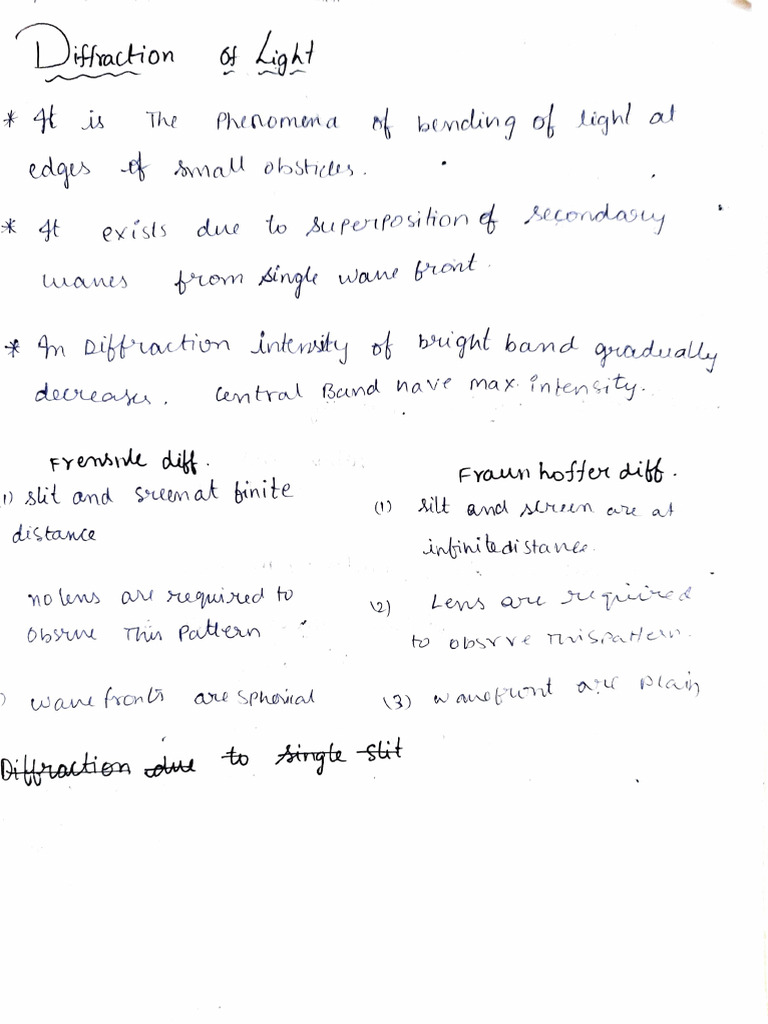 Diffraction of Light
* It is The Phenomena of bending of light at
edges of small obsticles.
* It exists due to superposition of secondary
waves from single wave front.
* In Diffraction intensity of bright band gradually
decreases. Central Band have max intensity.
Frensile diff.
1) slit and sreen at finite
distance
no lens are required to
obsrve This Pattern
) wave fronts are spherical
Fraun hoffer diff.
(1) silt and screen are at
infinite distance.
(2) Lens are required
to obsrve This pattern.
(3) wavefront are plain
Diffraction due to single slit